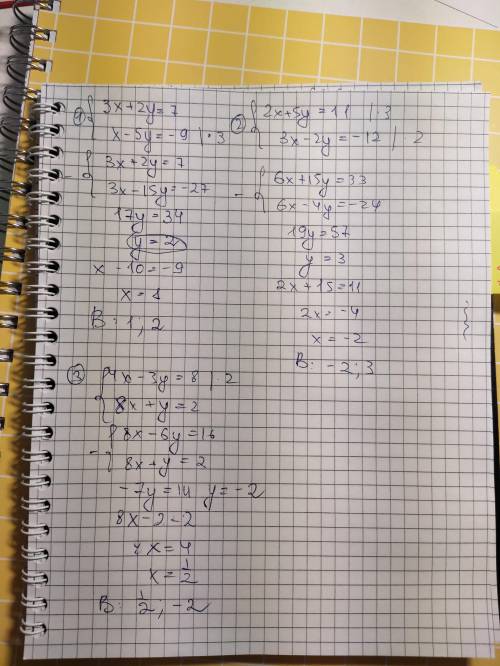 ① { 3x+2y=7
x-5y=-9 | ·3
- { 3x+2y=7
3x-15y=-27
17y=34
y=2
x-10=-9
x=1
В: 1, 2
② { 2x+5y=11 | ·3
3x-2y=-12 | 2
- { 6x+15y=33
6x-4y=-24
19y=57
y=3
2x+15=11
2x=-4
x=-2
В: -2; 3
③ { 4x-3y=8 | 2
8x+y=2
- { 8x-6y=16
8x+y=2
-7y=14 y=-2
8x-2=2
x=4
x=1/2
В: 1/2; -2